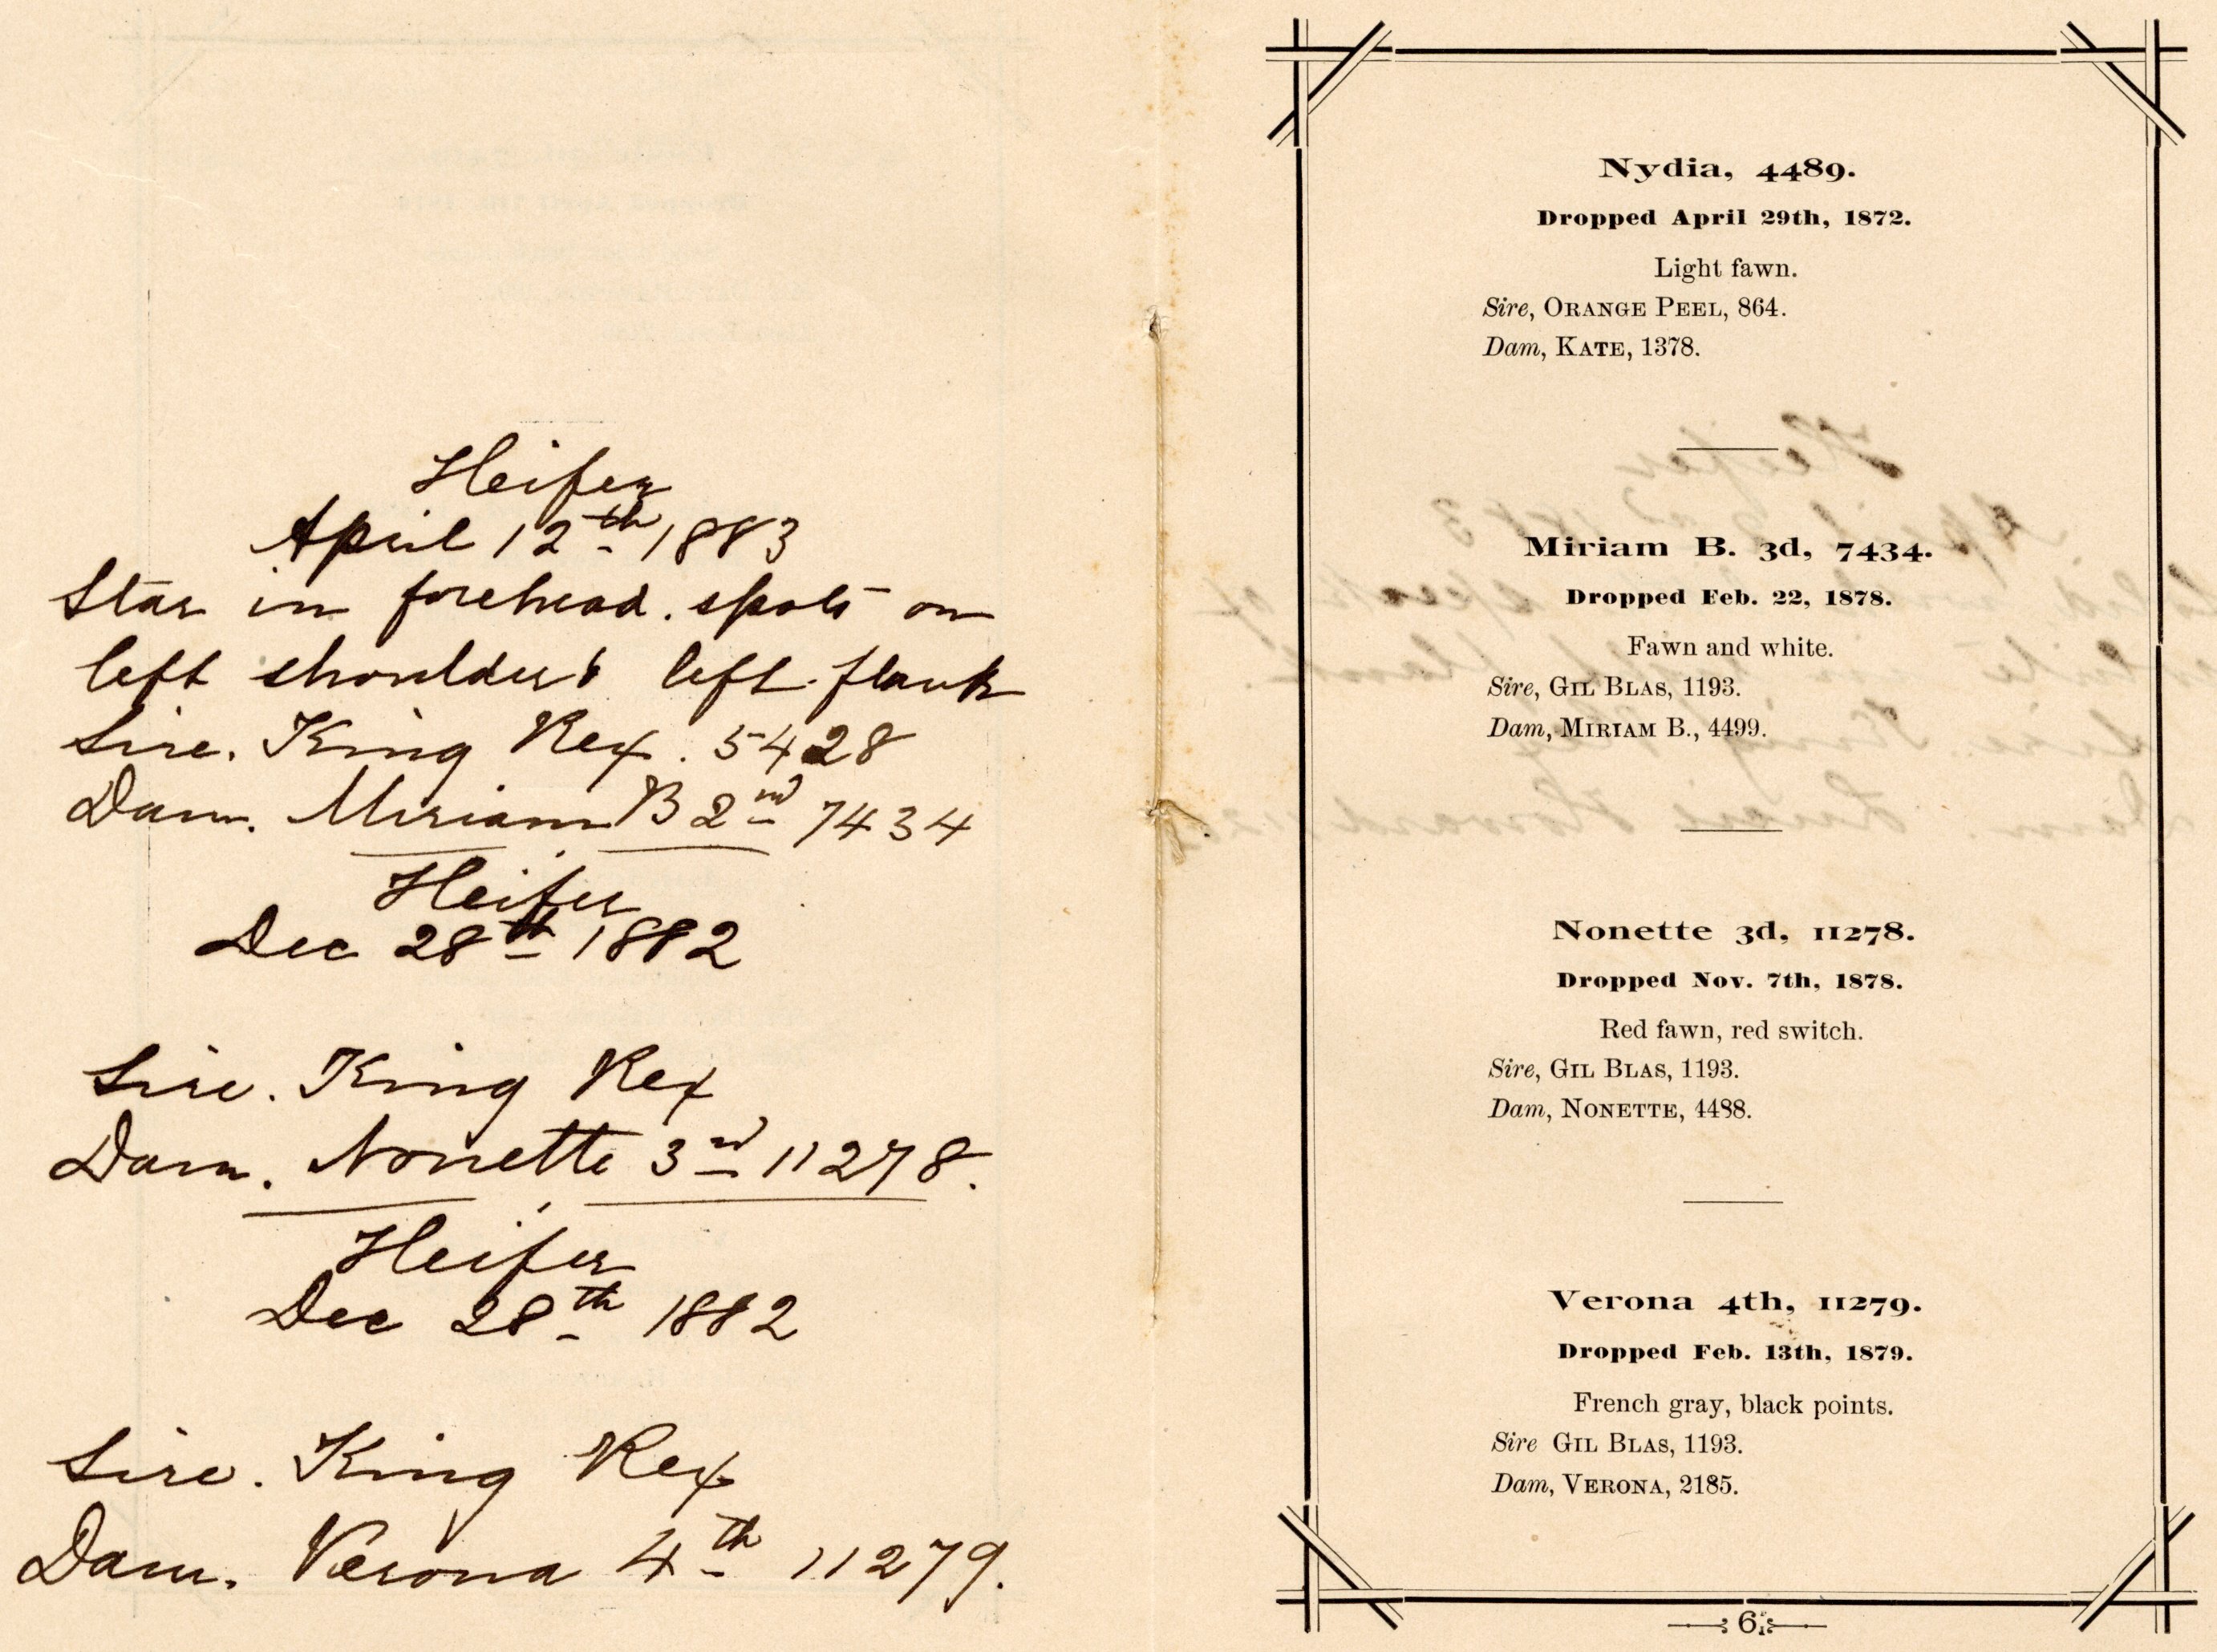 Heifer
April 12th 1883
Star in forehead. spots on
left shoulder & left flank
Sire. King Rex. 5428
Dam. Miriam B 2nd 7434
Heifer
Dec 28th 1882
Sire. King Rex
Dam. Nonette 3rd 11278.
Heifer
Dec 28th 1882
Sire. King Rex
Dam. Verona 4th 11279.
Nydia, 4489.
Dropped April 29th, 1872.
Light fawn.
Sire, ORANGE PEEL, 864.
Dam, KATE, 1378.
Miriam B. 3d, 7434.
Dropped Feb. 22, 1878.
Fawn and white.
Sire, GIL BLAS, 1193.
Dam, MIRIAM B., 4499.
Nonette 3d, 11278.
Dropped Nov. 7th, 1878.
Red fawn, red switch.
Sire, GIL BLAS, 1193.
Dam, NONETTE, 4488.
Verona 4th, 11279.
Dropped Feb. 13th, 1879.
French gray, black points.
Sire GIL BLAS, 1193.
Dam, VERONA, 2185.
6